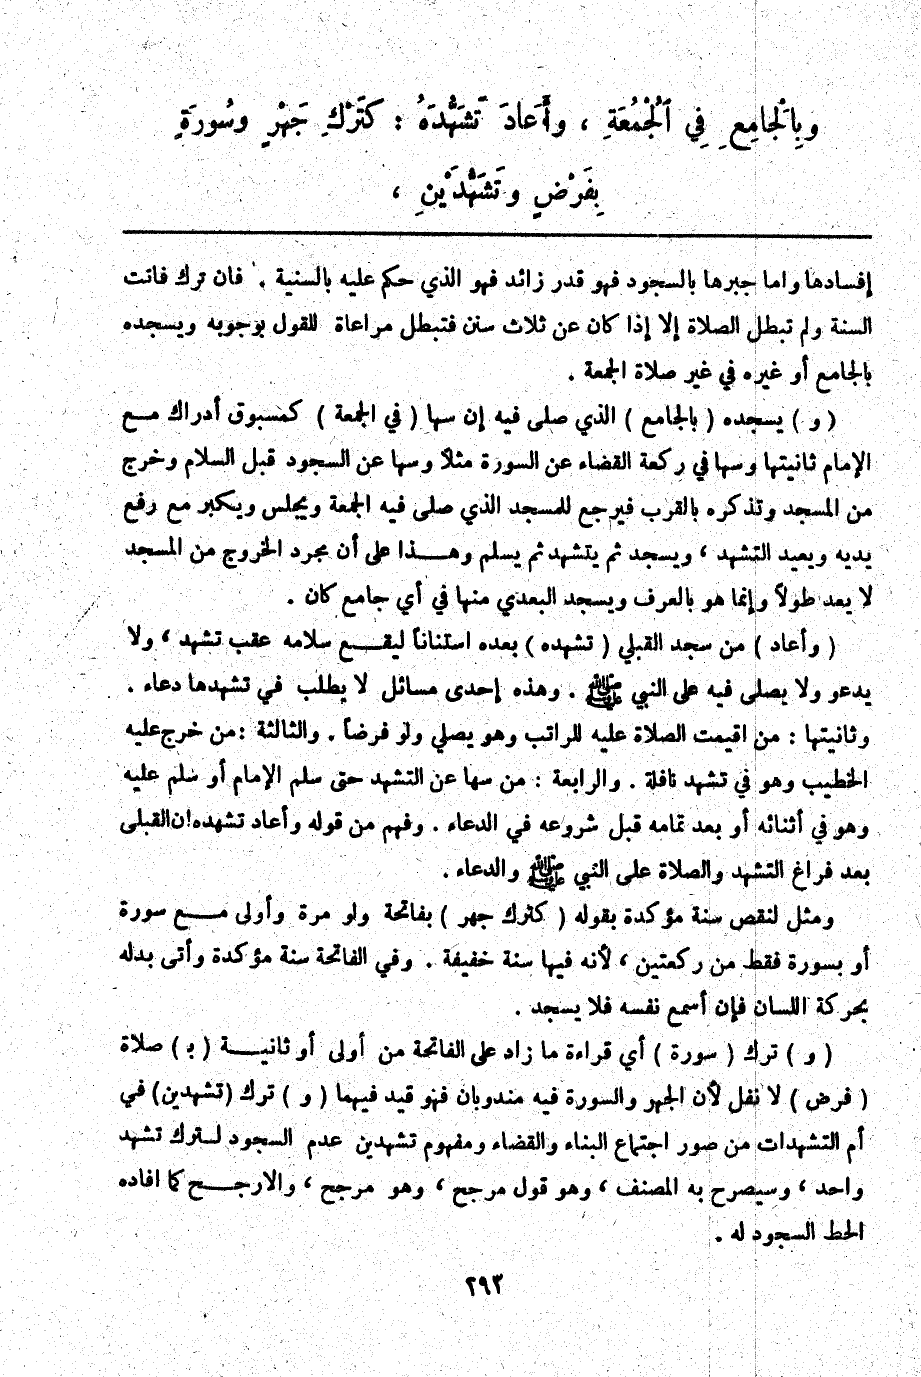 وبِالْجامِعِ فِي ٱلْجُمُعَةِ ، وأَعادَ تَشَهُّدَهُ : كَتَرْكِ جَهْرٍ وسُورَةٍ
بِفَرْضٍ وتَشَهُّدَيْنِ ،
إفسادها واما جبرها بالسجود فهو قدر زائد فهو الذي حكم عليه بالسنية . فان ترك فاتت
السنة ولم تبطل الصلاة إلا إذا كان عن ثلاث سنن فتبطل مراعاة للقول بوجوبه ويسجده
بالجامع أو غيره في غير صلاة الجمعة .
( و ) يسجده ( بالجامع ) الذي صلى فيه إن سها ( في الجمعة ) كمسبوق أدراك مـع
الإمام ثانيتها وسها في ركعة القضاء عن السورة مثلاً وسها عن السجود قبل السلام وخرج
من المسجد وتذكره بالقرب فيرجع للمسجد الذي صلى فيه الجمعة ويجلس ويكبر مع رفع
يديه ويعيد التشهد ، ويسجد ثم يتشهد ثم يسلم وهـــذا على أن مجرد الخروج من المسجد
لا يعد طولاً وإنما هو بالعرف ويسجد البعدي منها في أي جامع كان .
( وأعاد ) من سجد القبلي ( تشهده ) بعده استناناً ليقـــع سلامه عقب تشهد ، ولا
يدعو ولا يصلى فيه على النبي ﷺ . وهذه إحدى مسائل لا يطلب في تشهدها دعاء .
وثانيتها : من اقيمت الصلاة عليه للراتب وهو يصلي ولو فرضاً . والثالثة :من خرج عليه
الخطيب وهو في تشهد نافلة . والرابعة : من سها عن التشهد حتى سلم الإمام أو سلم عليه
وهو في أثنائه أو بعد تمامه قبل شروعه في الدعاء . وفهم من قوله وأعاد تشهده ان القبلى
بعد فراغ التشهد والصلاة على النبي ﷺ والدعاء .
ومثل لنقص سنة مؤكدة بقوله ( كترك جهر ) بفاتحة ولو مرة وأولى مـــع سورة
أو بسورة فقط من ركعتين ، لأنه فيها سنة خفيفة . وفي الفاتحة سنة مؤكدة وأتى بدله
بحركة اللسان فإن أسمع نفسه فلا يسجد .
( و ) ترك ( سورة ) أي قراءة ما زاد على الفاتحة من أولى أو ثانيـــة ( بـ ) صلاة
( فرض ) لا نفل لأن الجهر والسورة فيه مندوبان فهو قيد فيهما ( و ) ترك (تشهدين) في
أم التشهدات من صور اجتماع البناء والقضاء ومفهوم تشهدين عدم السجود لـترك تشهد
واحد ، وسيصرح به المصنف ، وهو قول مرجح ، وهو مرجح ، والارجـــح كما افاده
الحط السجود له .
٢٩٣